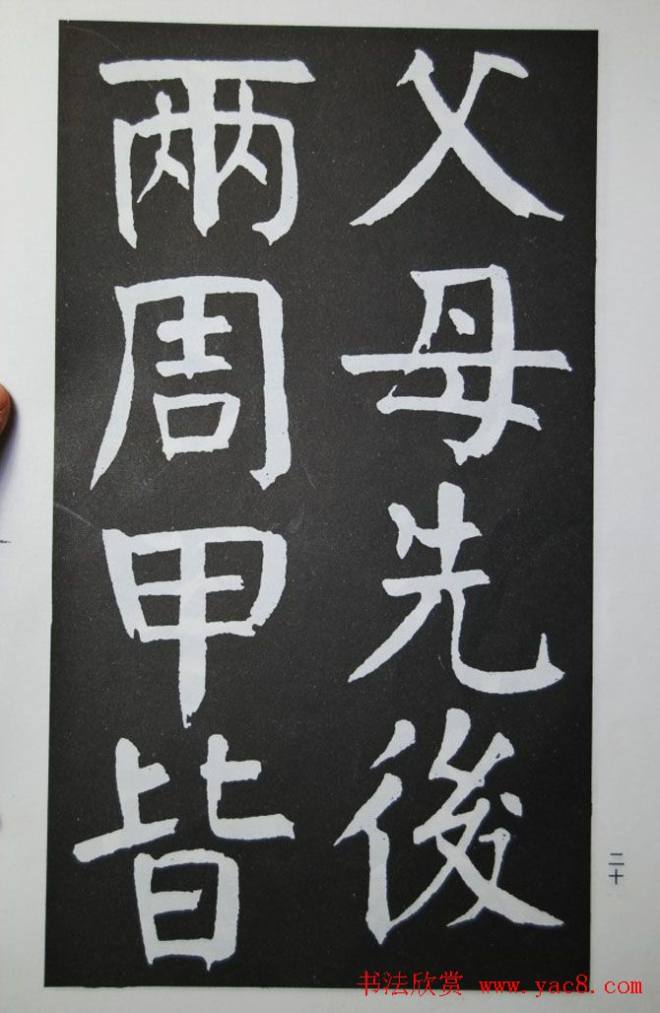 父母先後
兩周甲皆
二十
书法欣赏 www.yac8.com